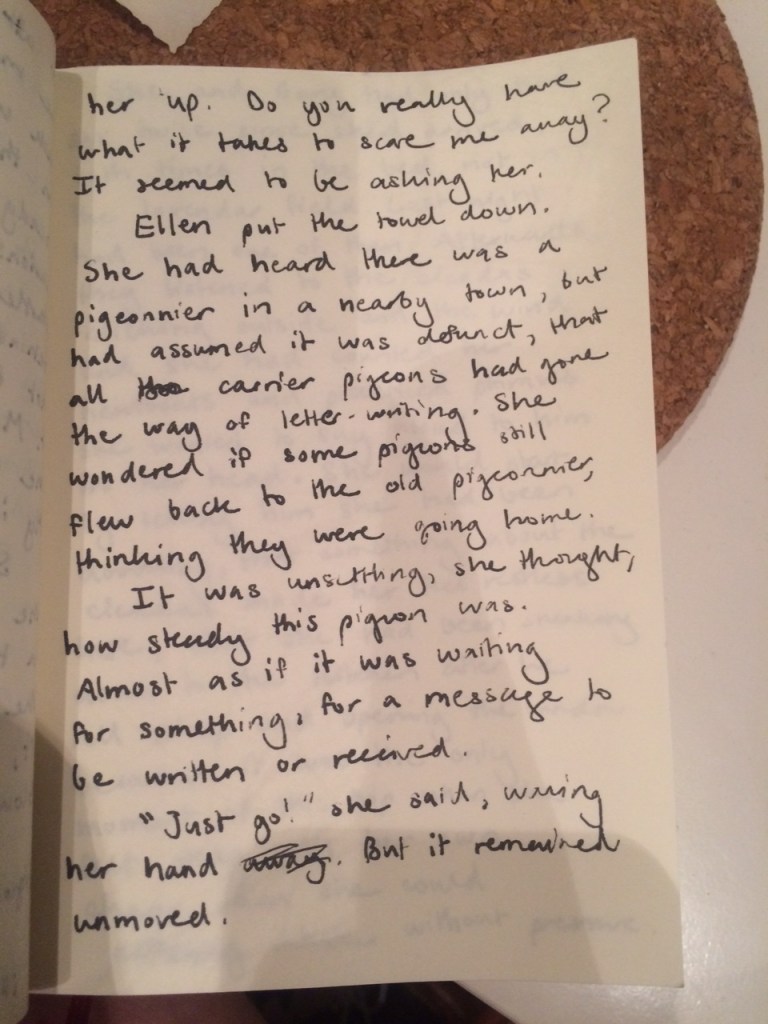 her up. Do you really have
what it takes to scare me away?
It seemed to be asking her.
Ellen put the towel down.
She had heard there was a
pigeonnier in a nearby town, but
had assumed it was defunct, that
all carrier pigeons had gone
the way of letter-writing. She
wondered if some pigeons still
flew back to the old pigeonnier,
thinking they were going home.
It was unsettling, she thought,
how steady this pigeon was.
Almost as if it was waiting
for something, for a message to
be written or received.
"Just go!" she said, waving
her hand away. But it remained
unmoved.